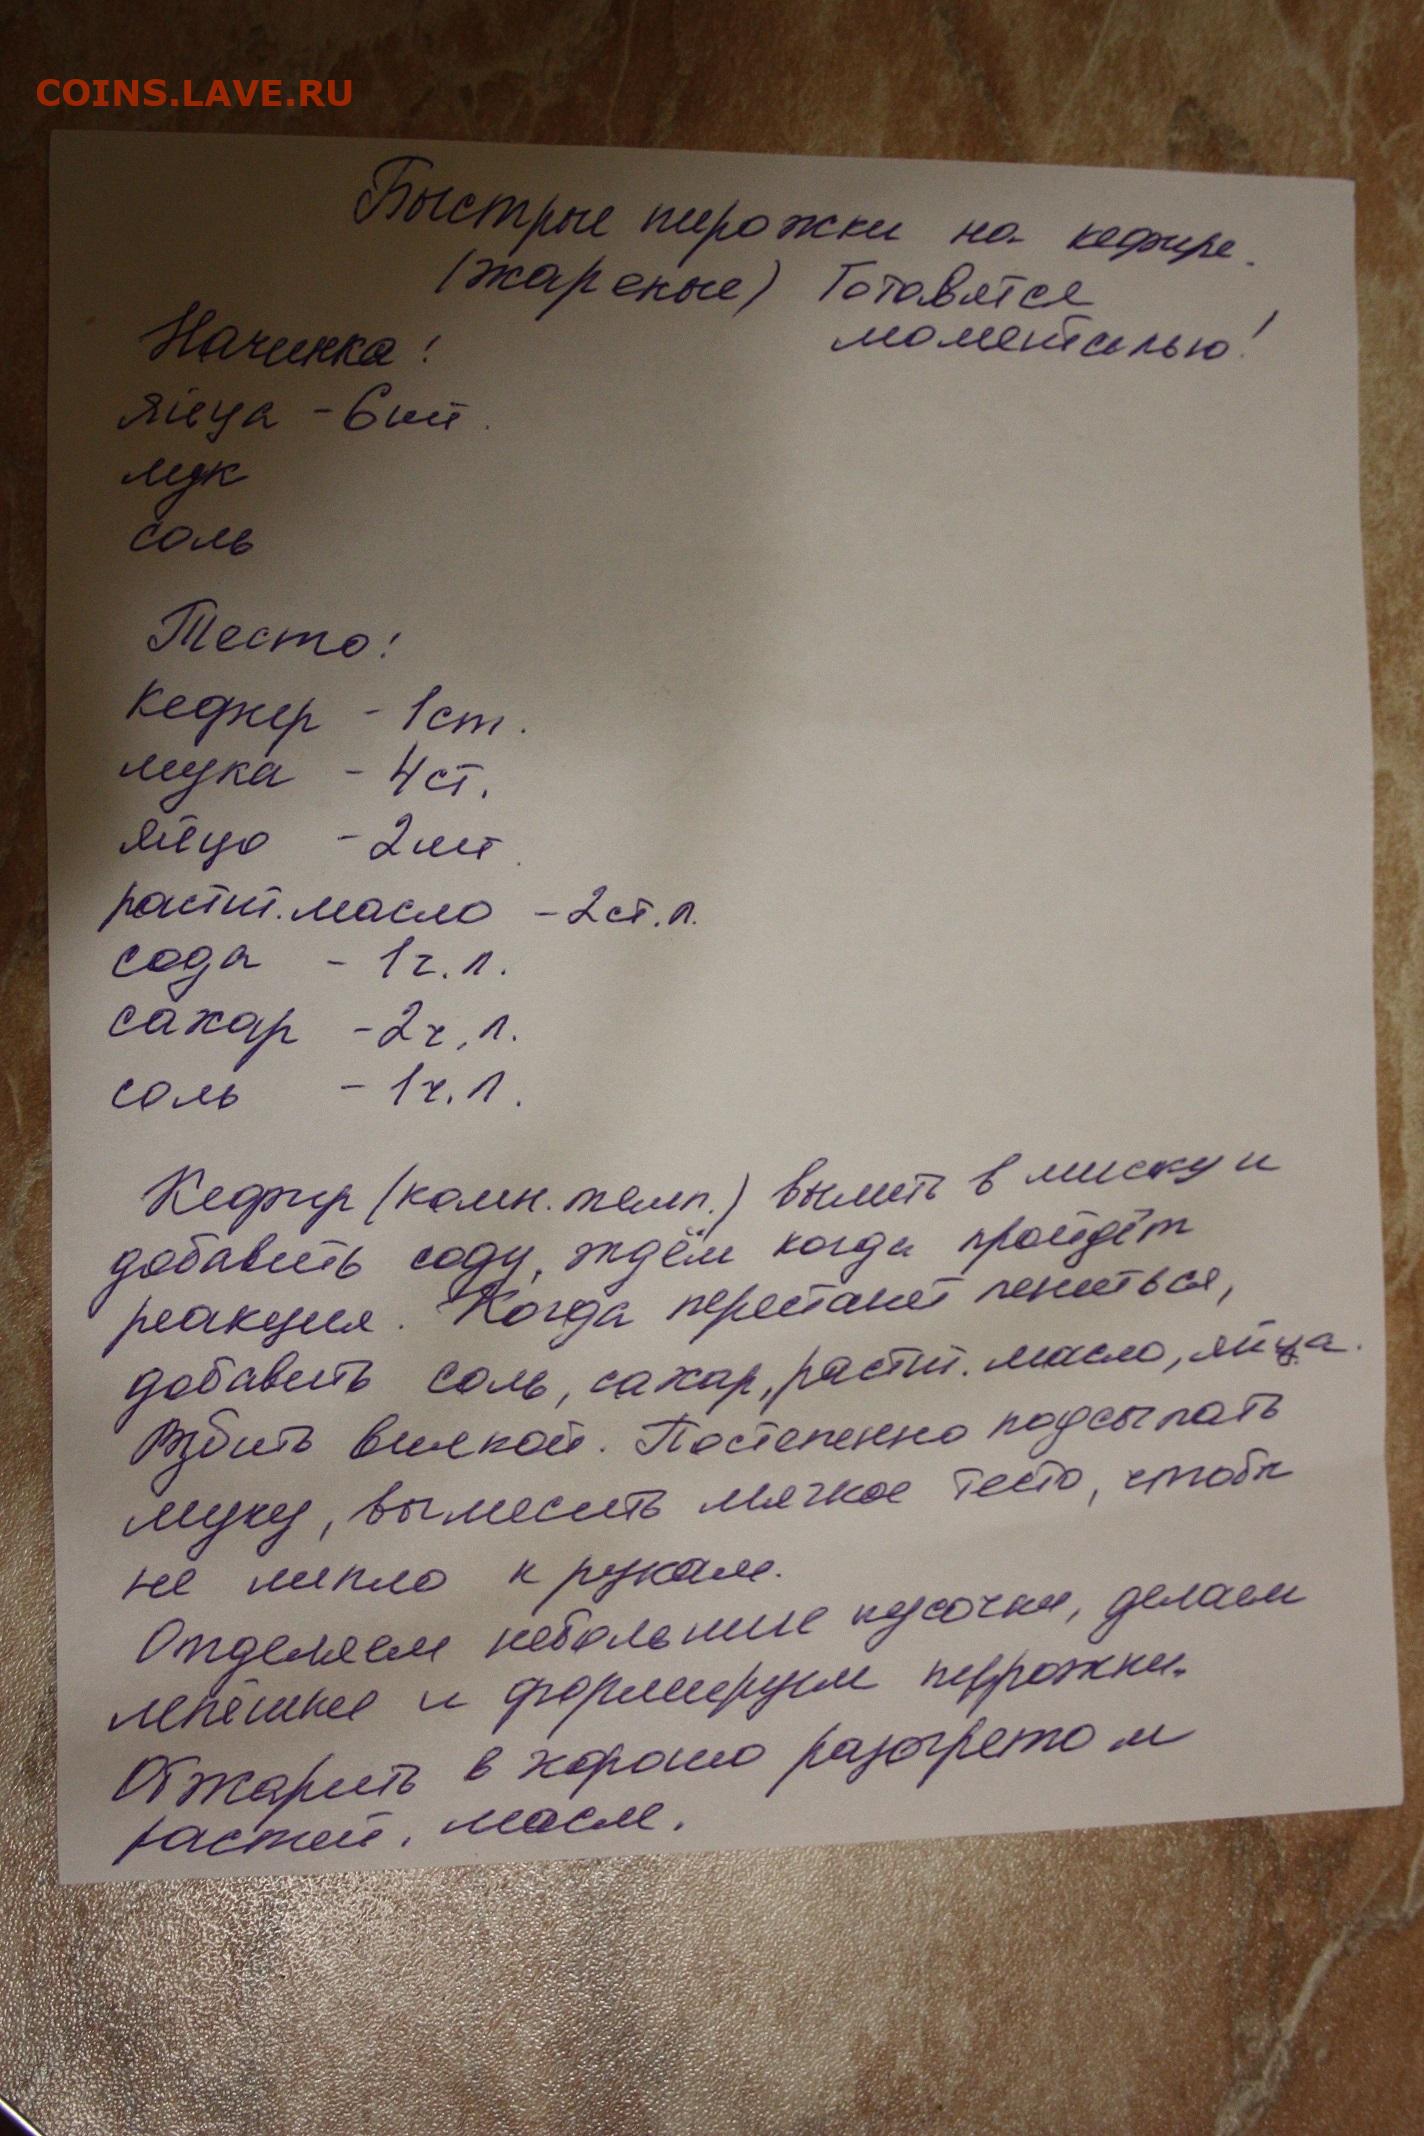 COINS.LAVE.RU
Быстрые пирожки на кефире.
(жареные) Готовятся
моментально!
Начинка:
яйца - 6 шт.
лук
соль
Тесто:
кефир - 1 ст.
мука - 4 ст.
яйцо - 2 шт.
растит. масло - 2 ст. л.
сода - 1 ч. л.
сахар - 2 ч. л.
соль - 1 ч. л.
Кефир (комн. темп.) вылить в миску и
добавить соду, ждём когда пройдёт
реакция. Когда перестанет пениться,
добавить соль, сахар, растит. масло, яйца.
Взбить вилкой. Постепенно подсыпать
муку, вымесить мягкое тесто, чтобы
не липло к рукам.
Отделяем небольшие кусочки, делаем
лепёшки и формируем пирожки.
Обжарить в хорошо разогретом
растит. масле.